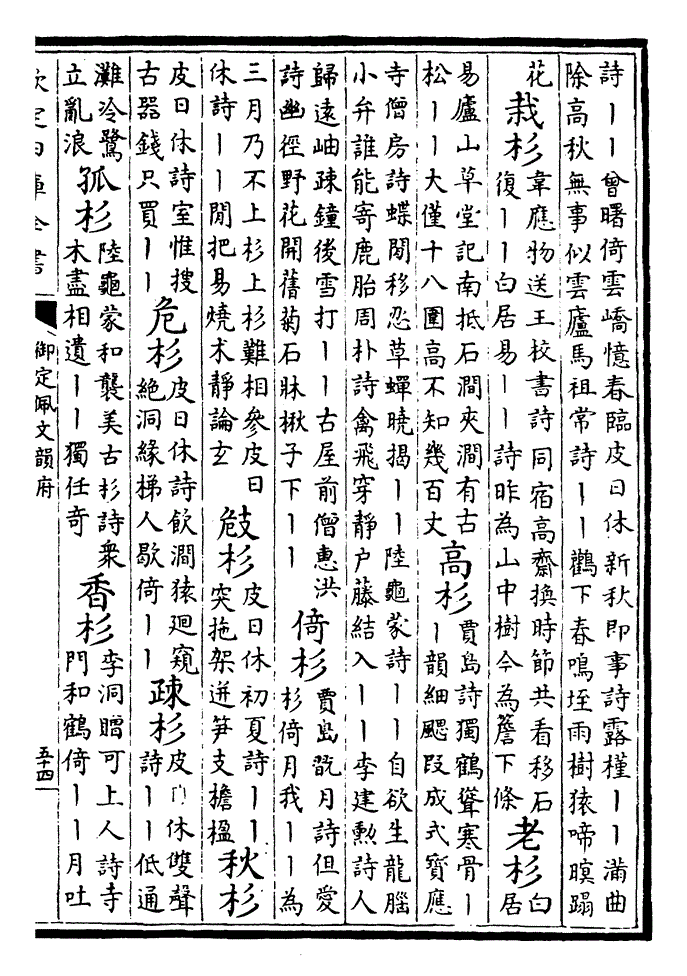 詩丨丨曾曙倚雲嶠憶春臨皮日休新秋即事詩露槿丨丨滿曲
除高秋無事似雲廬馬祖常詩丨丨鸛下春鳴垤雨樹猿啼暝蹋
花
栽杉
韋應物送王校書詩同宿高齋換時節共看移石
復丨丨白居易丨丨詩昨為山中樹今為簷下條
老杉
白
居
易廬山草堂記南抵石澗夾澗有古
松丨丨大僅十八圍高不知幾百丈
高杉
賈島詩獨鶴聳寒骨丨
丨韻細颸段成式寶應
寺僧房詩蝶閒移忍草蟬曉揭丨丨陸龜蒙詩丨丨自欲生龍腦
小弁誰能寄鹿胎周朴詩禽飛穿靜户藤結入丨丨李建勲詩人
歸遠岫疎鐘後雪打丨丨古屋前僧惠洪
詩幽徑野花開舊菊石牀楸子下丨丨
倚杉
賈島翫月詩但愛
杉倚月我丨丨為
三月乃不上杉上杉難相參皮日
休詩丨丨閒把易燒朮靜論玄
敧杉
皮日休初夏詩丨丨
突拖架迸笋支擔楹
秋杉
皮日休詩室惟搜
古器錢只買丨丨
危杉
皮日休詩飲澗猿迴窺
絶洞緣梯人歇倚丨丨
疎杉
皮日休雙聲
詩丨丨低通
灘冷鷺
立亂浪
孤杉
陸龜蒙和襲美古杉詩衆
木盡相遺丨丨獨任奇
香杉
李洞贈可上人詩寺
門和鶴倚丨丨月吐
欽定四庫全書
御定佩文韻府
五十四